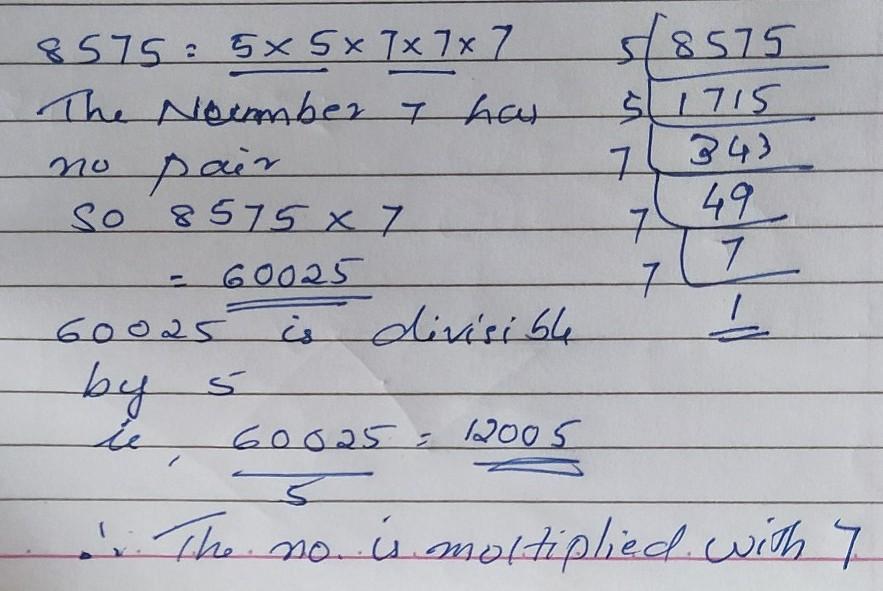 8575 = 5 × 5 × 7 × 7 × 7
The Number 7 has
no pair
So 8575 × 7
= 60025
60025 is divisible
by 5
ie, 60025 = 12005
5
∴ The no. is moltiplied with 7
5 8575
5 1715
7 343
7 49
7 7
1